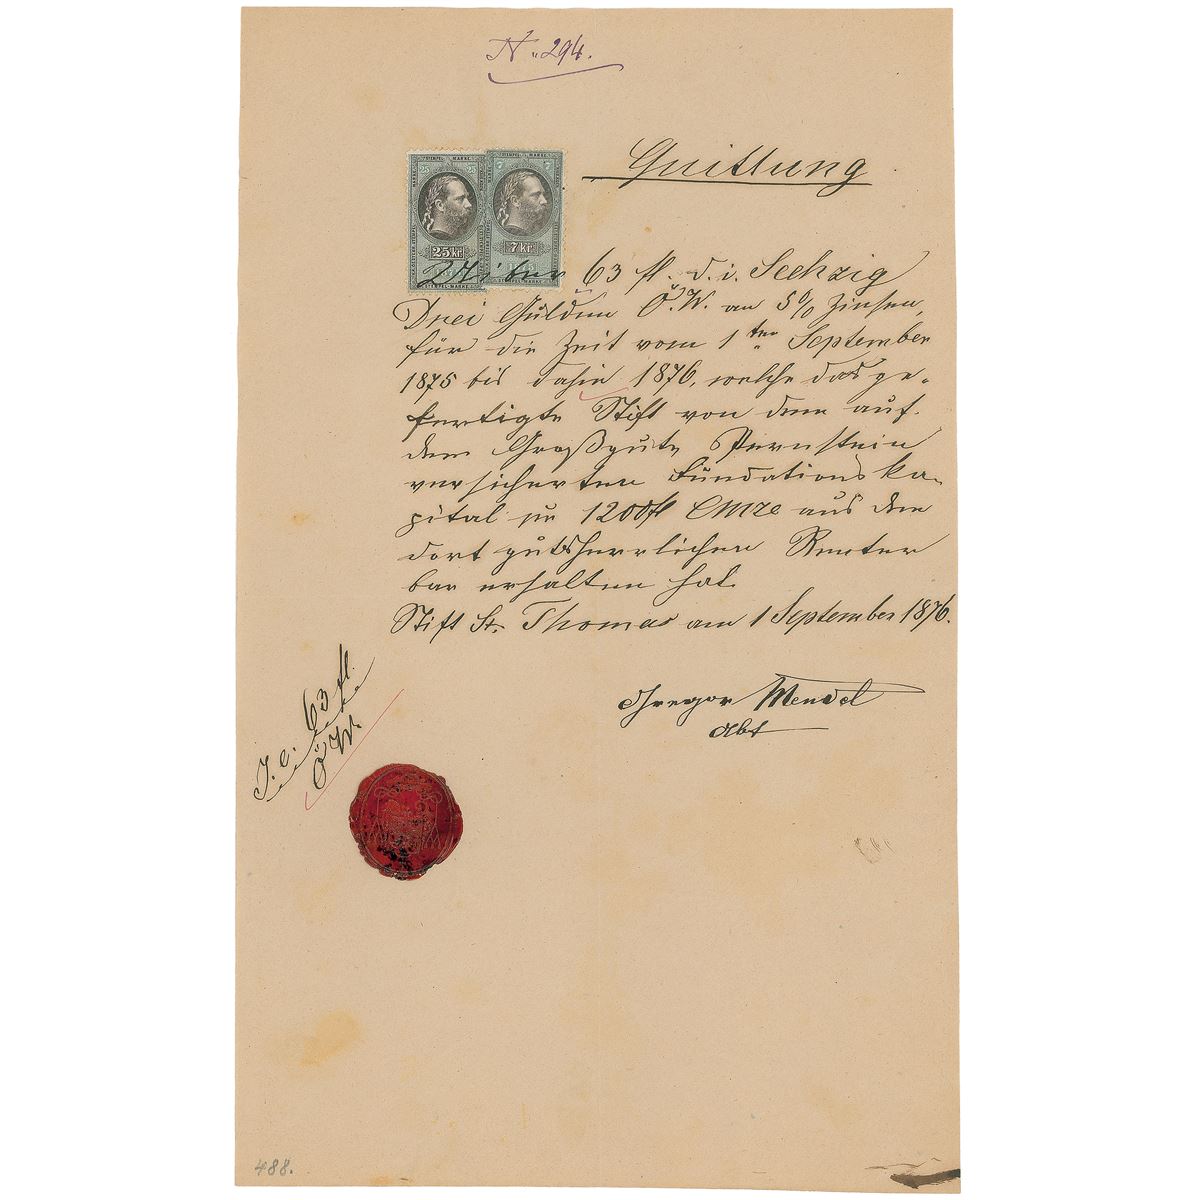 N. 294.
Quittung
STEMPEL MARKE
25 25
7 7
25 kr
7 kr
Über 63 fl. d. i. Sechzig
Drei Gulden Ö. W. an 5% Zinsen,
für die Zeit vom 1ten September
1875 bis dahin 1876, welche das ge-
fertigte Stift von dem auf
dem Großgute Pernstein
versicherten Fundations Ka-
pital zu 1200 fl Cmze aus dem
dort gutsherrlichen Renten
bar erhalten hat.
Stift St. Thomas am 1 September 1876.
Gregor Mendel
Abt
63 fl.
Ö W.
488.